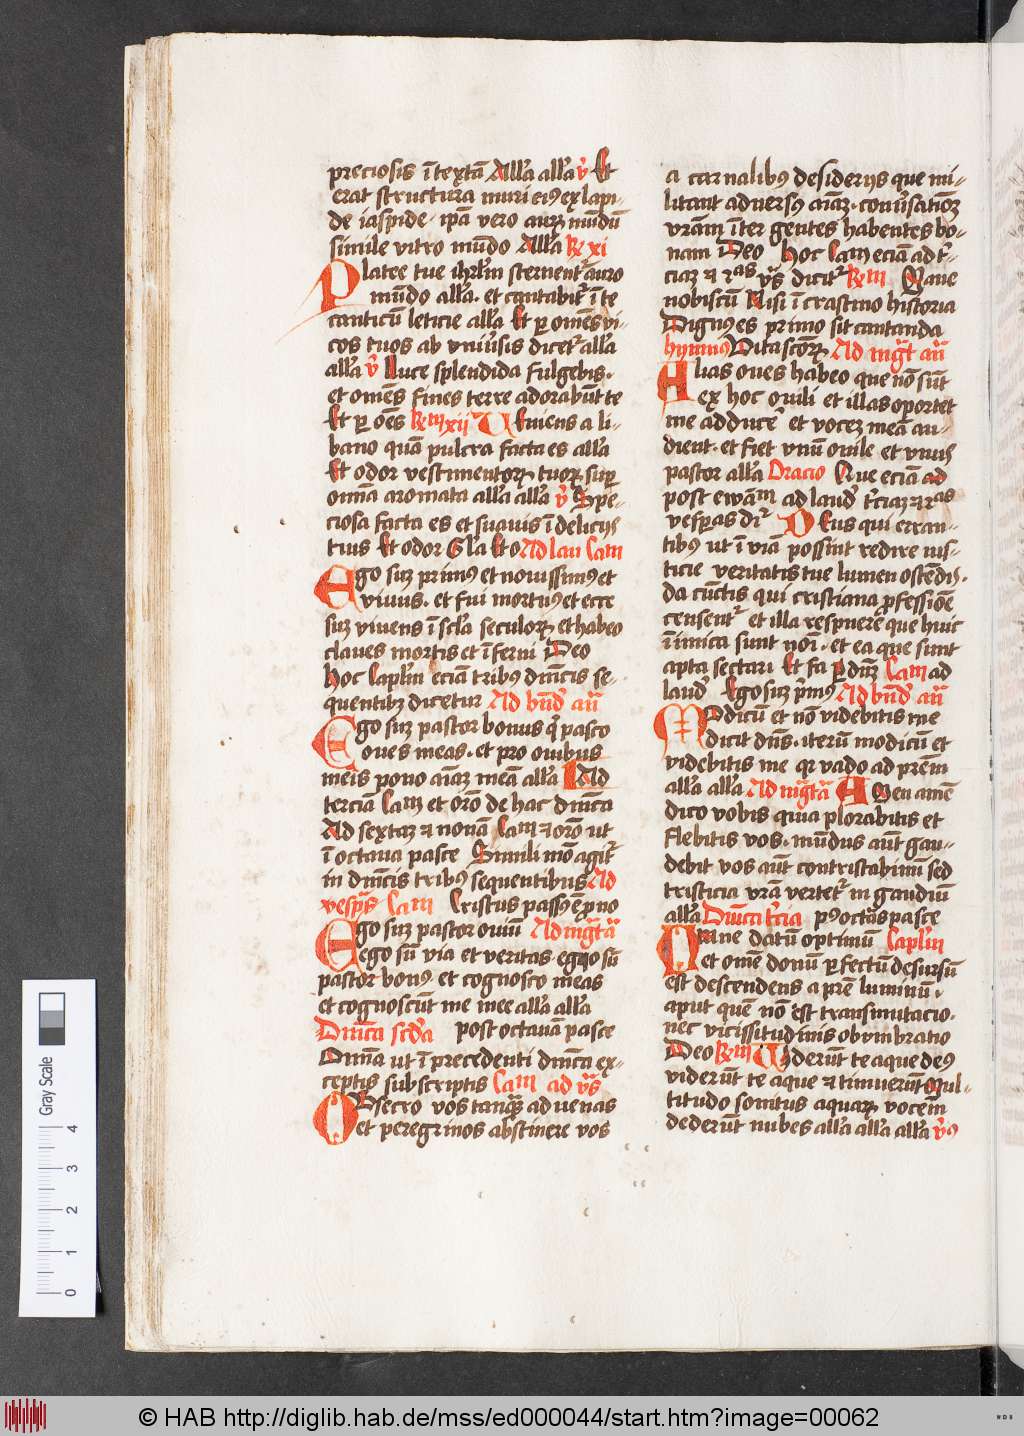 preciosis ītextā All'a all'a v̉ Et
erat structura muri eiꝰ ex lapi-
de iaspide · ip̄a vero aurꝫ mūdū
simile vitro mūdo All'a ꝶ xi
Platee tue ihrl'm sternent᷑ auro
mūdo all'a · et cantabit᷑ ī te
canticū leticie all'a Et ꝑ om̄es vi-
cos tuos ab vniu'sis dicet᷑ all'a
all'a v̉ Luce splendida fulgebis ·
et om̄es fines terre adorabūt te
Et ꝑ oēs ꝶm xii Veniens a li-
bano quā pulcra facta es all'a
Et odor vestimentorꝝ tuorꝝ suꝑ
omīa aromata all'a all'a v̉ Spe-
ciosa facta es et suauis ī delicijs
tuis Et odor Gl'a Et o Ad lau Cam
Ego suꝫ primꝰ et nouissimꝰ et
viuus · et fui mortuꝰ et ecce
suꝫ viuens ī scl'a seculorꝝ et habeo
claues mortis et īferni Deo
Hoc Capl'm eciā tribꝰ dnīcis se-
quentibꝫ dicetur Ad bn̄d' an̄
Ego suꝫ pastor bonus q' pasco
oues meas · et pro ouibus
meis pono aīaꝫ meā all'a Ad
terciā Cam et orō de hac dnīca
Ad sextaꝫ ⁊ nonā Cam ⁊ orō ut
ī octaua pasce Simili mō agit᷑
in dnīcis tribꝰ sequentibus Ad
vesꝑas Cam Cristus passꝰ ē pro no
Ego suꝫ pastor ouiū Ad mg̃tā
ego sū via et veritas · ego sū
pastor bonꝰ et cognosco meas
et cognoscūt me mee all'a all'a
Dnīca scd'a post octauā pasce
Omīa ut ī precedenti dnīca ex-
ceptis subscriptis Cam ad v̄s
Obsecro vos tanqꝫ aduenas
et peregrinos abstinere vos
a carnalibꝰ desiderijs que mi-
litant aduersꝰ aīaꝫ · conu'satiōeꝫ
vrām īter gentes habentes bo-
nam Deo Hoc Cam eciam ad t'-
ciaꝫ ⁊ 2as v̄s dicit᷑ ꝶm Mane
nobiscū Nisi ī crastino historia
Dignꝰ es primo sit cantanda
hymnꝰ Vita scōrꝝ Ad mg̃t an̄
Alias oues habeo que nō sūt
ex hoc ouili et illas oportet
me adducē et voceꝫ meā au-
dient · et fiet vnū ouile et vnus
pastor all'a Oracio Que eciā ad
post ewām ad laud' t'ciaꝫ ⁊ 2as
vesꝑas dr̄ Deus qui erran-
tibꝰ ut ī viā possint redire ius-
ticie veritatis tue lumen ostēdis ·
da cūctis qui cristiana ꝓfessiōe
censent᷑ et illa respuere que huic
īimica sunt noī · et ea que sunt
apta sectari Et fa Ꝑ dn̄ꝫ Cam ad
laud' Ego suꝫ p'mꝰ Ad bn̄d' an̄
Modicū et nō videbitis me
dicit dn̄s · iterū modicū et
videbitis me qr vado ad prēm
all'a all'a Ad mg̃tā Amen amē
dico vobis quia plorabitis et
flebitis vos · mūdus aūt gau-
debit vos aūt contristabimī sed
tristicia vrā vertet᷑ in gaudiū
all'a Dnīca t'cia pꝰ octās pasce
Omne datū optimū Capl'm
et omē donū ꝑfectū desursū
est descendens a prē luminū ·
aput quē nō est transmutacio ·
nec vicissitudinis obumbratio
Deo ꝶm Viderūt te aque deꝰ
viderūt te aque ⁊ timuerūt Mul-
titudo sonitus aquarꝝ vocem
dederūt nubes all'a all'a all'a v̉ꝰ
Gray Scale
0 1 2 3 4
© HAB http://diglib.hab.de/mss/ed000044/start.htm?image=00062